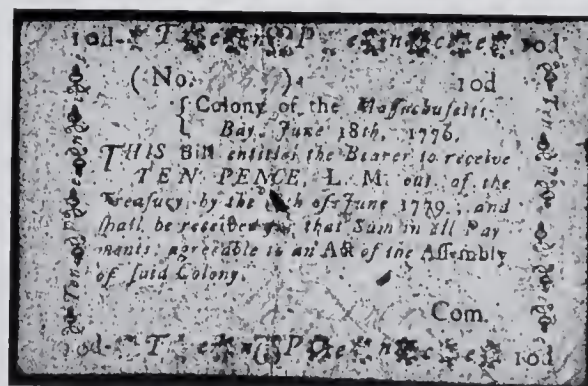 10d. T e n P e n c e 10d
(No. ). 10d
Colony of the Massachusetts
Bay, June 18th, 1776.
THIS Bill entitles the Bearer to receive
TEN PENCE, L. M. out of the
Treasury by the of June 1779, and
shall be received for that Sum in all Pay
ments, agreeable to an Act of the Assembly
of said Colony.
Com.
10d T e n P e n c e 10d
Ten